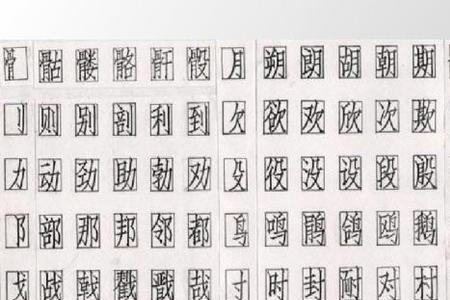 骨 骷 髅 骼 骭 骰 月 朔 朗 胡 朝 期
刂 则 别 剖 利 到 欠 欲 欢 欣 次 欺
力 动 劲 助 勃 劝 殳 役 没 设 段 殿
阝 部 那 邦 邻 都 鸟 鸣 鹃 鸽 鸥 鹅
戈 战 戟 戳 戬 哉 寸 时 封 耐 对 村